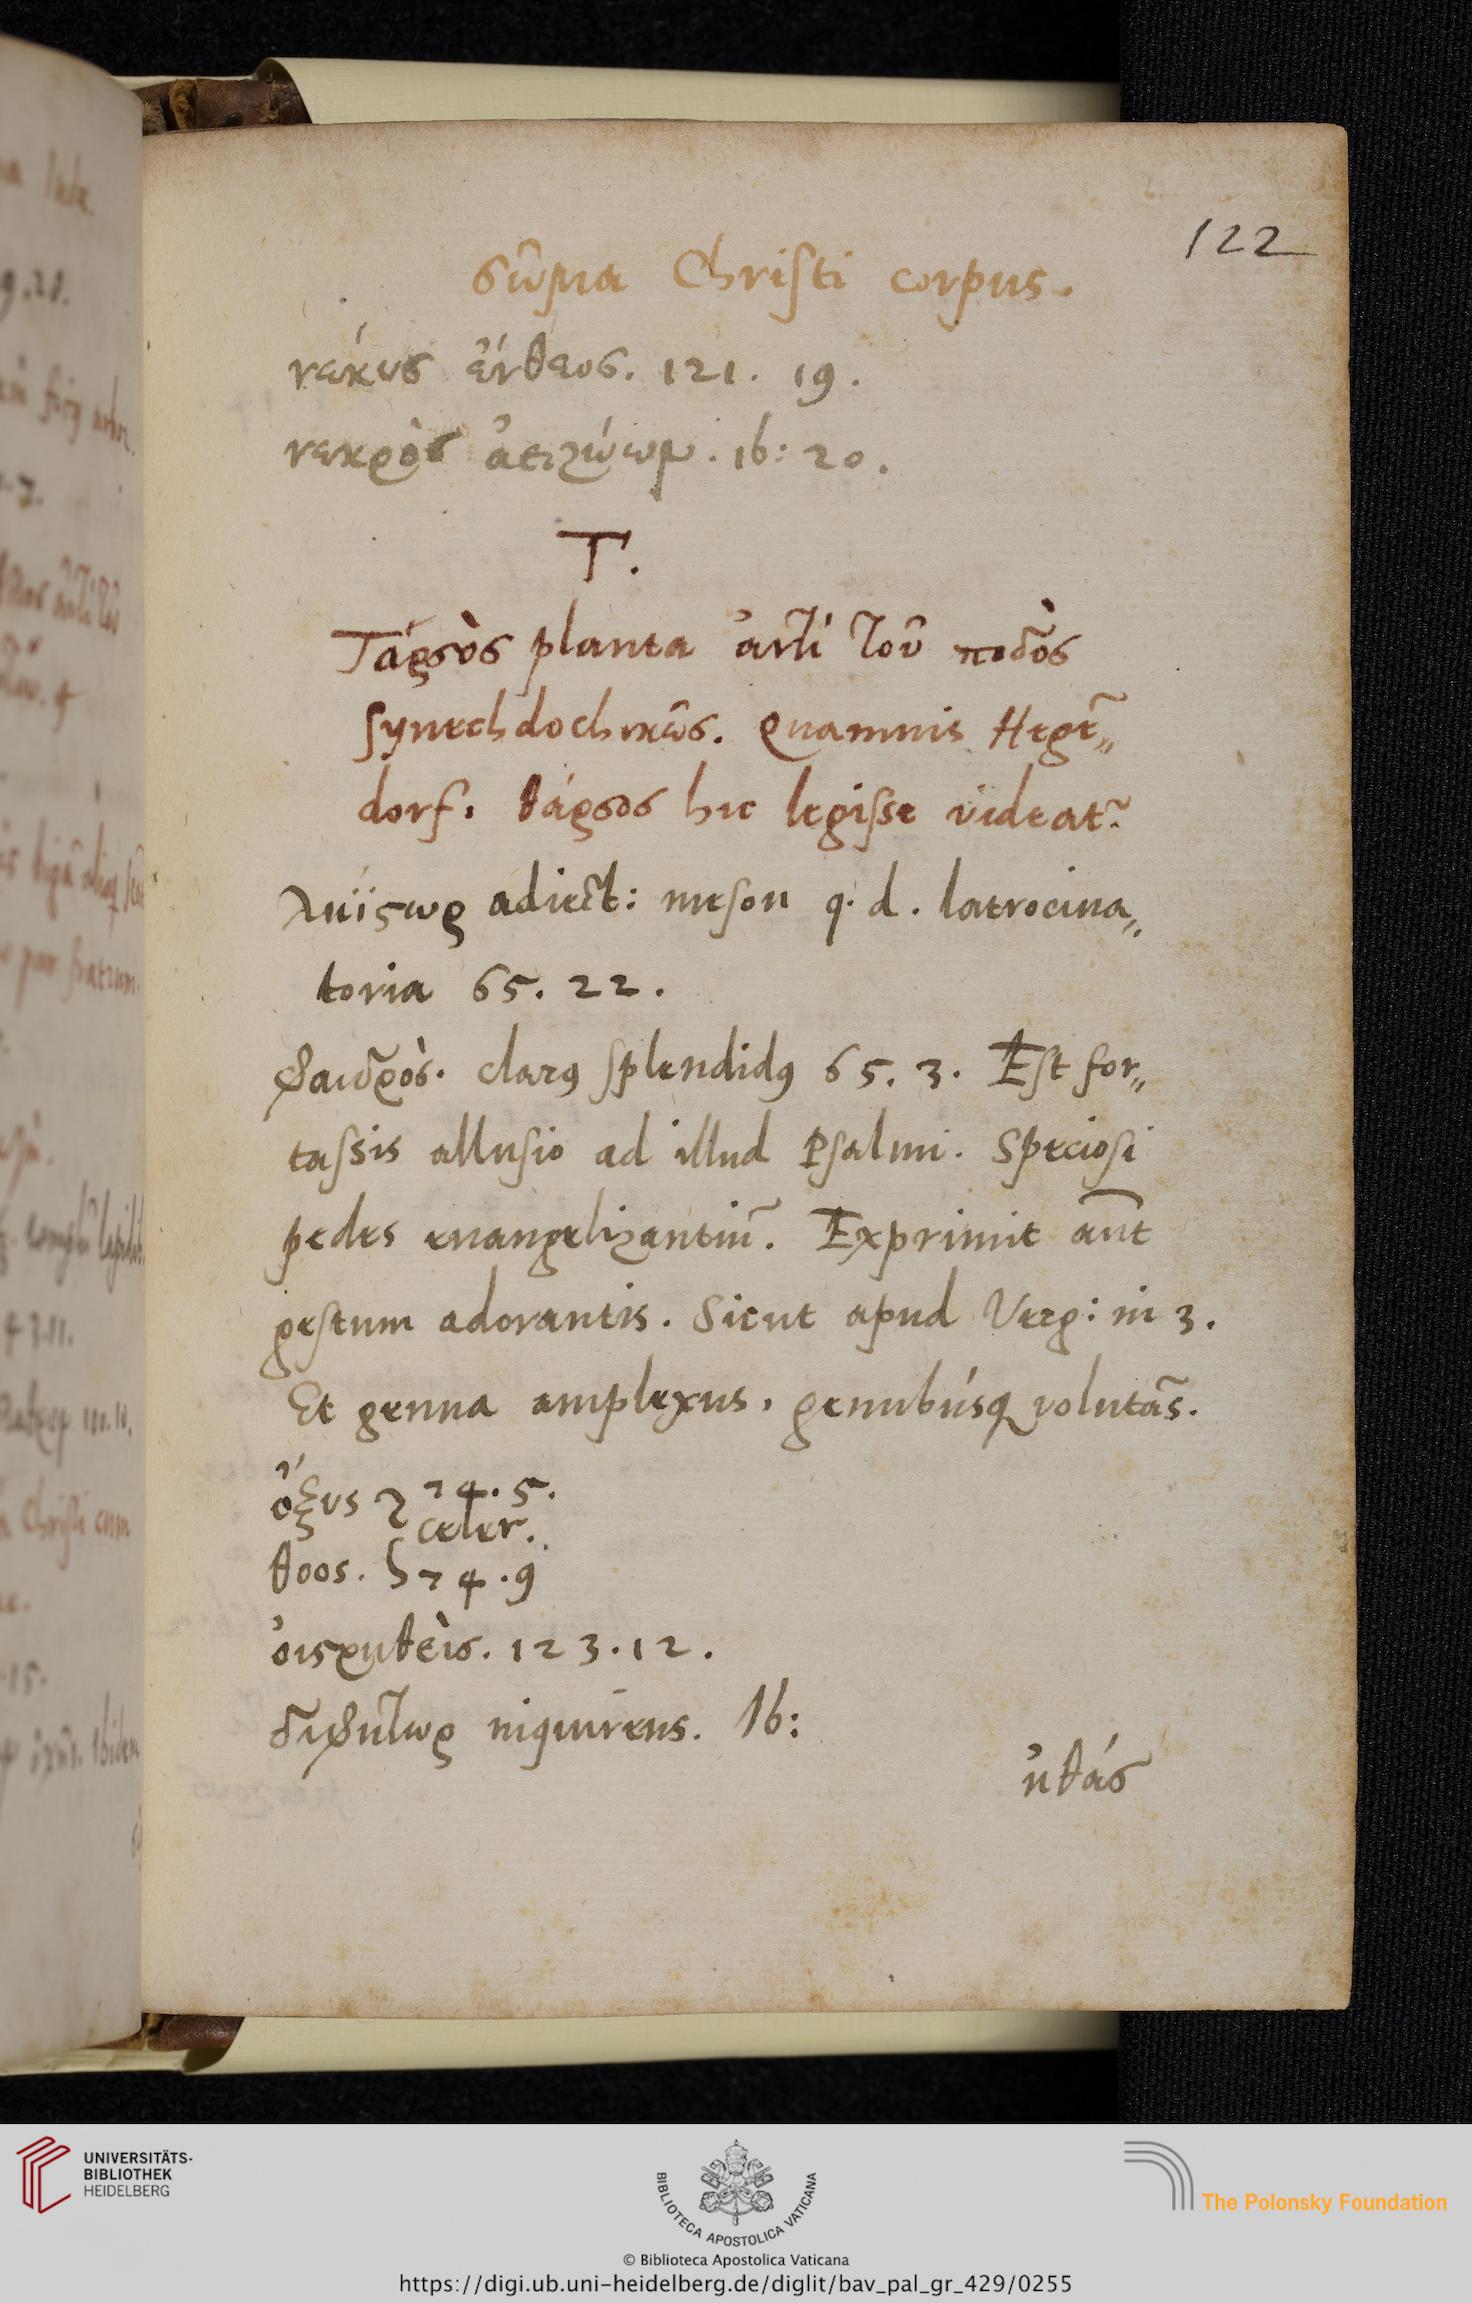 122
σῶμα Christi corpus.
νέκυς ἔνθεος. 121. 19.
νεκρὸς ἀειζώων. ib: 20.
T.
Ταρσὸς planta ἀντὶ τοῦ ποδὸς
synechdochικῶς. Quamuis Hege„
dorf. θάρσος hic legisse videat᷑.
ληΐστωρ adiect: meson q. d. latrocina„
toria 65. 22.
φαιδρὸς. clarꝰ splendidꝰ 65. 3. Est for„
tassis allusio ad illud Psalmi. Speciosi
pedes euangelizantiū. Exprimit aūt
gestum adorantis. Sicut apud Verg: in 3.
Et genua amplexus, genubúsq volutās.
ὄξυς 74. 5.
celer.
θοος. 74. 9
οἰστρηθεὶς. 123. 12.
διφήτωρ inquirens. Ib:
ἠθάς
UNIVERSITÄTS-
BIBLIOTHEK
HEIDELBERG
BIBLIOTECA APOSTOLICA VATICANA
The Polonsky Foundation
© Biblioteca Apostolica Vaticana
https://digi.ub.uni-heidelberg.de/diglit/bav_pal_gr_429/0255